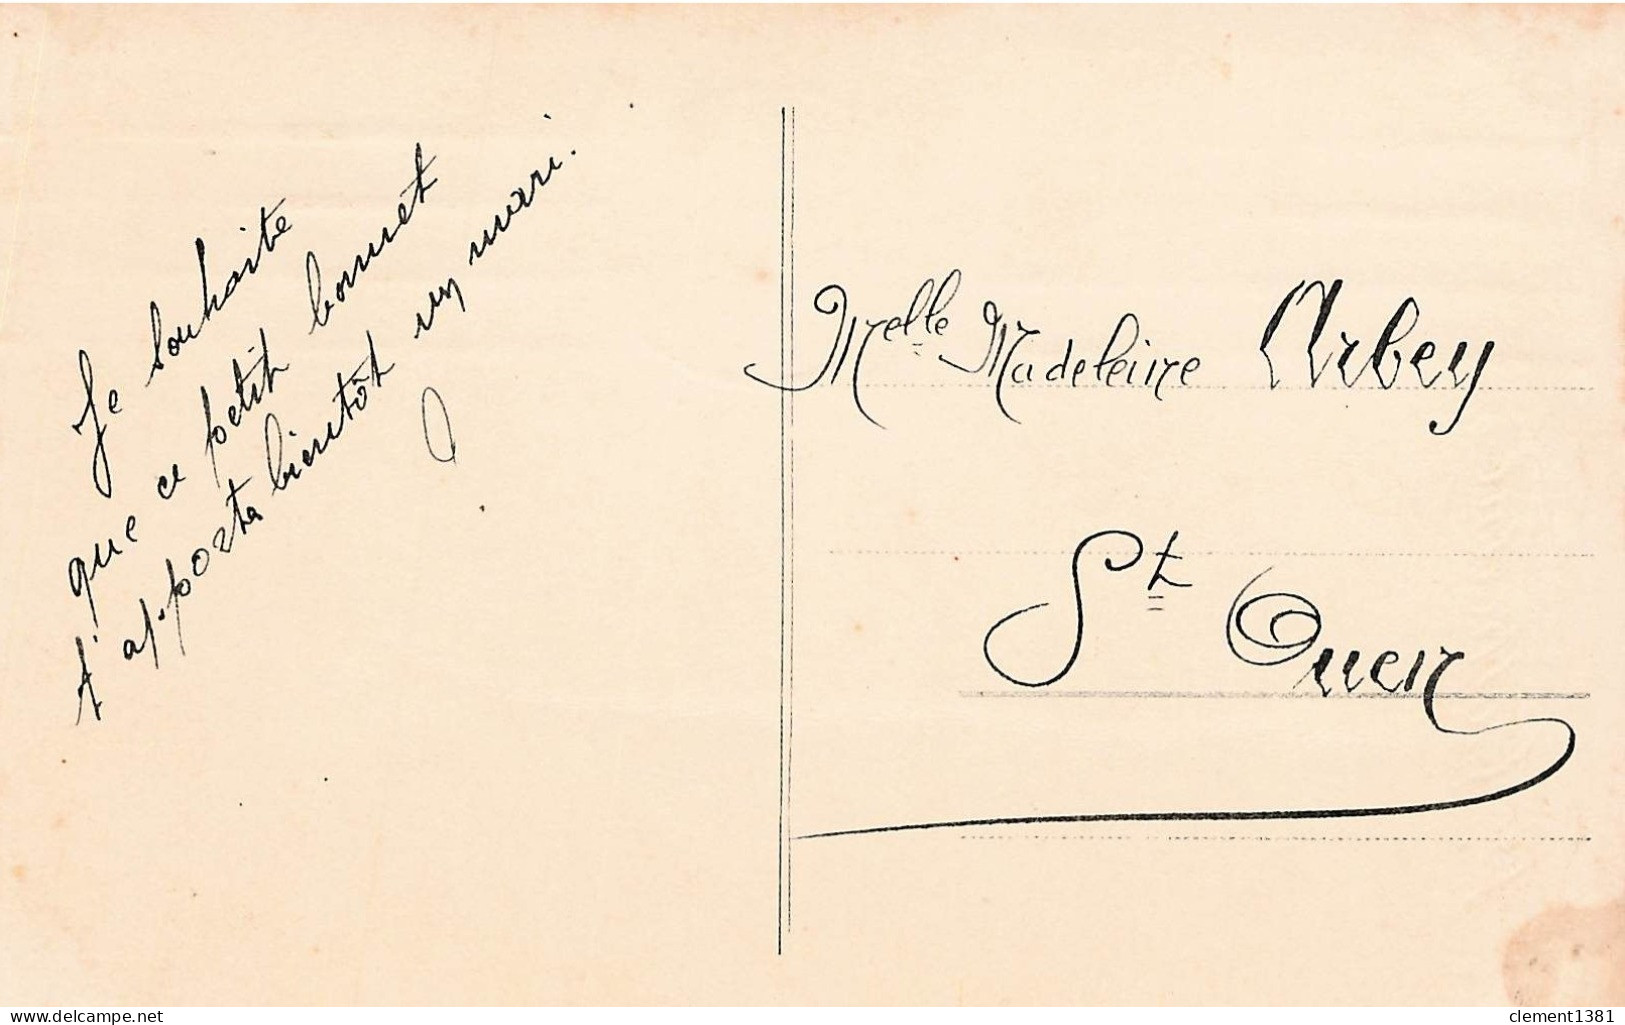 Je souhaite
que ce petit bonnet
t'apporte bientôt un mari.
Melle Madeleine Arbey
St Ouen
www.delcampe.net
clement1381